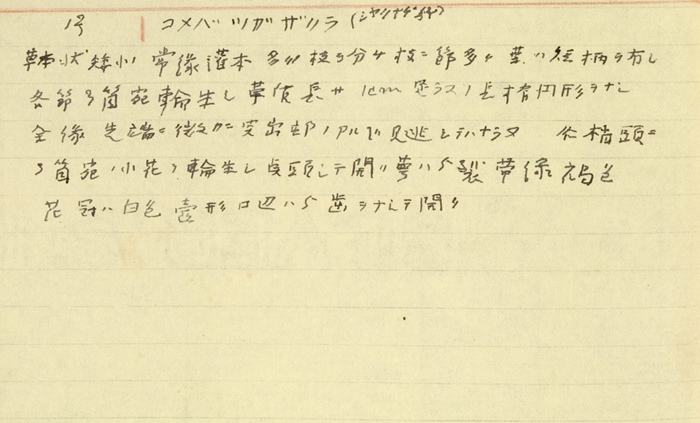 1号 コメバツガザクラ (シャクナゲ科)
草本状矮小ノ常緑灌木多ク枝ヲ分ケ枝ニ節多ク葉ハ短柄ヲ有シ
各節3箇宛輪生シ革質長サ1cm足ラズノ長楕円形ヲナシ
全縁先端ニ微カニ突出部ノアルヲ見逃シテハナラヌ 梢頭ニ
3箇宛ノ小花ヲ輪生シ点頭シテ開ク萼ハ5裂帯緑褐色
花冠ハ白色壺形口辺ハ5歯ヲナシテ開ク